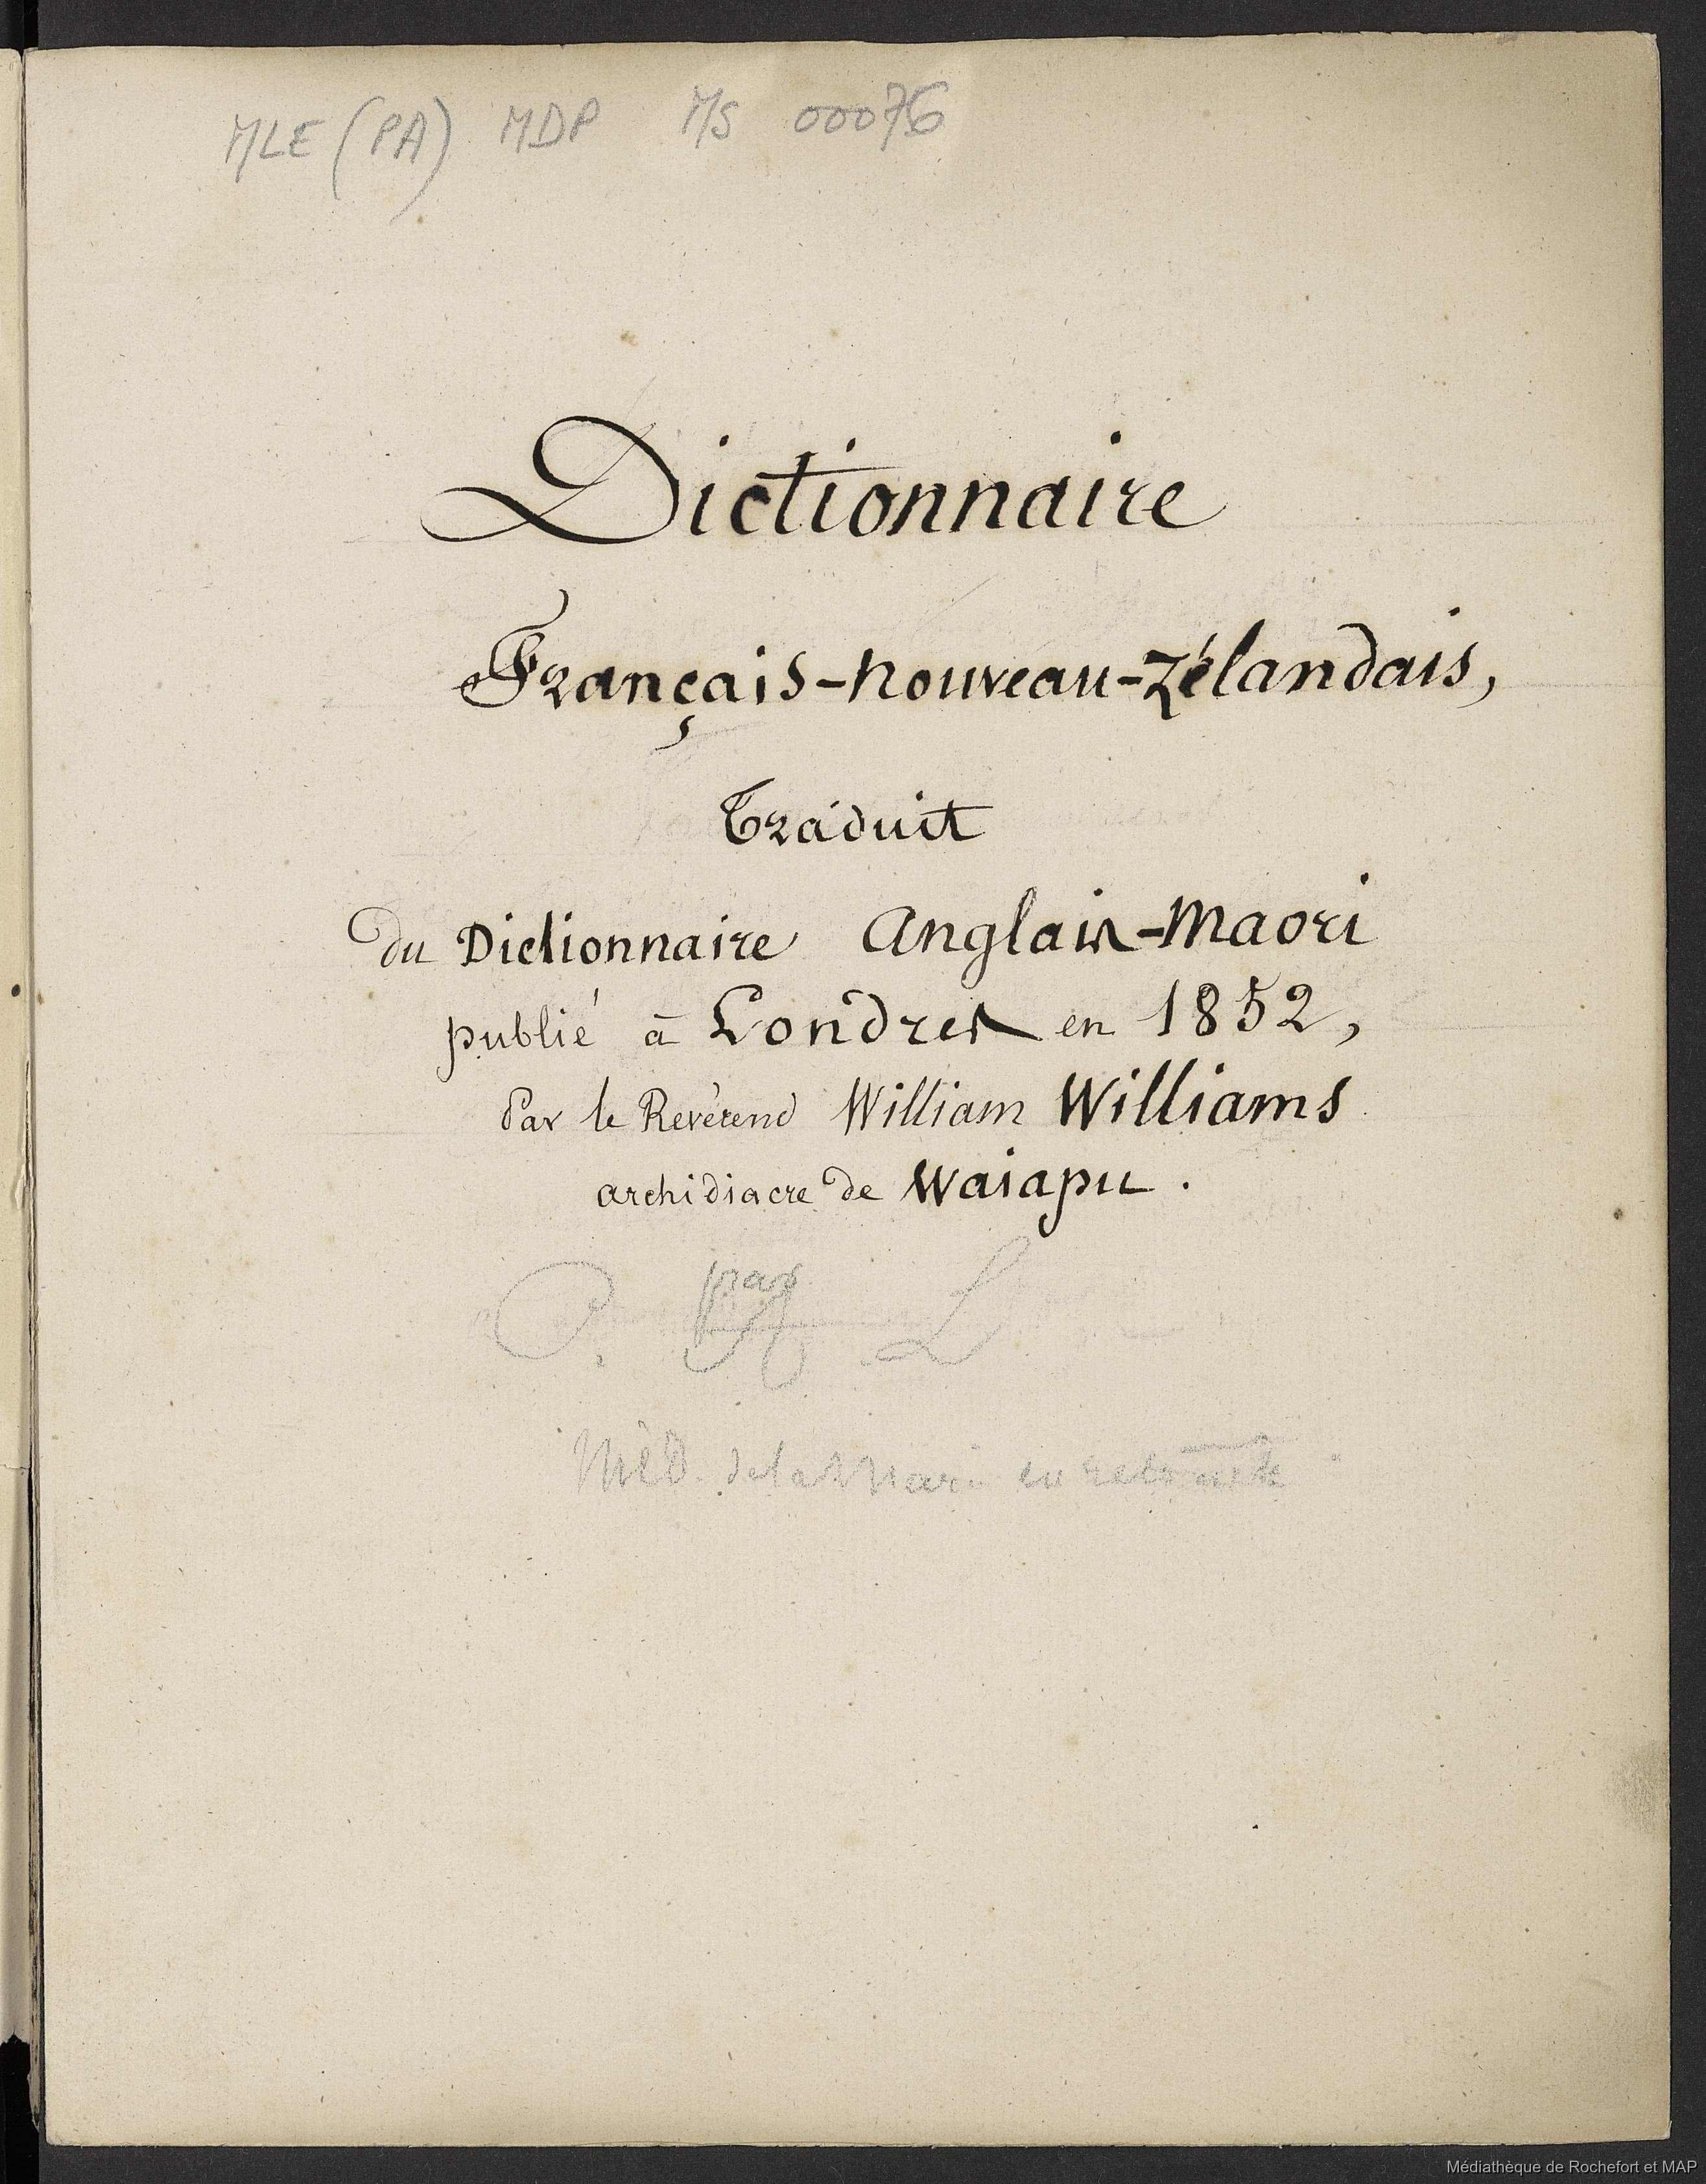 MLE (PA) MDP MS 00076
Dictionnaire
Français-Nouveau-Zélandais,
Traduit
du Dictionnaire Anglais-Maori
publié à Londres en 1852,
Par le Révérend William Williams
archidiacre de Waiapu.
par
P. H L
Méd. de la Marine en retraite
Médiathèque de Rochefort et MAP